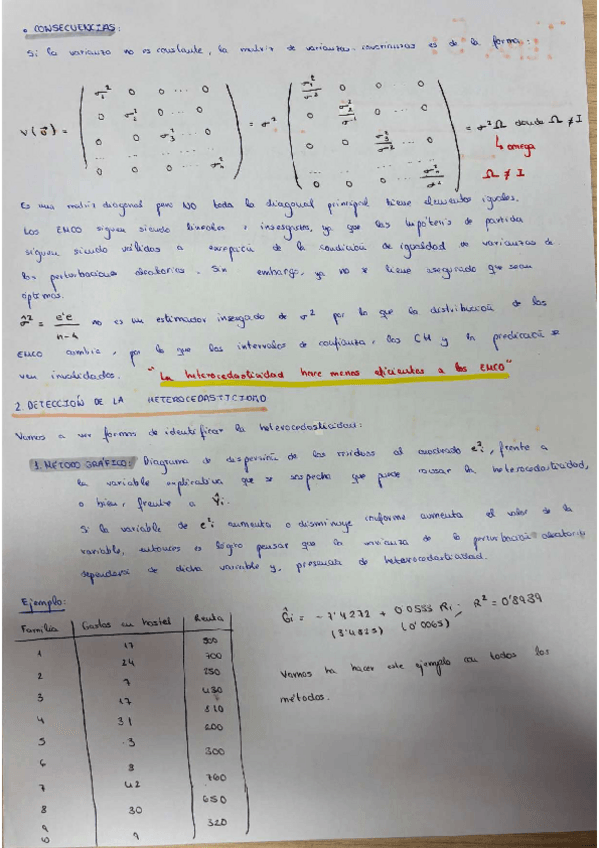 • CONSECUENCIAS:
Si la varianza no es constante, la matriz de varianzas-covarianzas es de la forma:
V(û) = ( σ₁² 0 0 ... 0 ; 0 σ₂² 0 ... 0 ; 0 0 σ₃² ... 0 ; ... ; 0 0 0 ... σₙ² ) = σ² ( σ₁²/σ² 0 0 ... 0 ; 0 σ₂²/σ² 0 ... 0 ; 0 0 σ₃²/σ² ... 0 ; ... ; 0 0 0 ... σₙ²/σ² ) = σ² Ω donde Ω ≠ I
↳ omega
Ω ≠ I
Es una matriz diagonal pero NO toda la diagonal principal tiene elementos iguales.
Los EMCO siguen siendo lineales e insesgados, ya que las hipótesis de partida
siguen siendo válidas a excepción de la condición de igualdad de varianzas de
las perturbaciones aleatorias. Sin embargo, ya no se tiene asegurado que sean
óptimos.
σ̂² = e'e / n-k no es un estimador insesgado de σ² por lo que la distribución de los
EMCO cambia, por lo que los intervalos de confianza, los CH y la predicción se
ven invalidados. "La heterocedasticidad hace menos eficientes a los EMCO"
2. DETECCIÓN DE LA HETEROCEDASTICIDAD
Vamos a ver formas de identificar la heterocedasticidad:
1. MÉTODO GRÁFICO: Diagrama de dispersión de los residuos al cuadrado e²i, frente a
la variable explicativa que se sospecha que puede causar la heterocedasticidad,
o bien, frente a Ŷi.
Si la variable de e²i aumenta o disminuye conforme aumenta el valor de la
variable, entonces es lógico pensar que la varianza de la perturbación aleatoria
dependerá de dicha variable y, presencia de heterocedasticidad.
Ejemplo:
Familia Gastos en hostel Renta
1 17 500
2 24 700
3 7 250
4 17 430
5 31 810
6 3 600
7 8 300
8 42 760
9 30 650
10 9 320
Ĝi = -7'4272 + 0'0555 Ri; R² = 0'8939
(3'4823) (0'0063)
Vamos ha hacer este ejemplo con todos los
métodos.